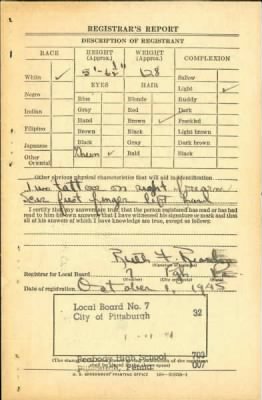 REGISTRAR'S REPORT
DESCRIPTION OF REGISTRANT
RACE HEIGHT (Approx.) WEIGHT (Approx.) COMPLEXION
5'-6½" 128
White ✓ Sallow
EYES HAIR Light ✓
Negro Blue Blonde Ruddy
Indian Gray Red Dark
Hazel Brown ✓ Freckled
Filipino Brown Black Light brown
Japanese Black Gray Dark brown
Other Oriental Bald Black
Other obvious physical characteristics that will aid in identification
Two tattoo on right forearm
Scar first finger left hand
I certify that my answers are true; that the person registered has read or has had
read to him his own answers; that I have witnessed his signature or mark and that
all of his answers of which I have knowledge are true, except as follows:
Ruth F.
Registrar for Local Board 7
Date of registration October 1, 1945
Local Board No. 7 32
City of Pittsburgh
Peabody High School 703
Pittsburgh, Penna. 007
U. S. GOVERNMENT PRINTING OFFICE